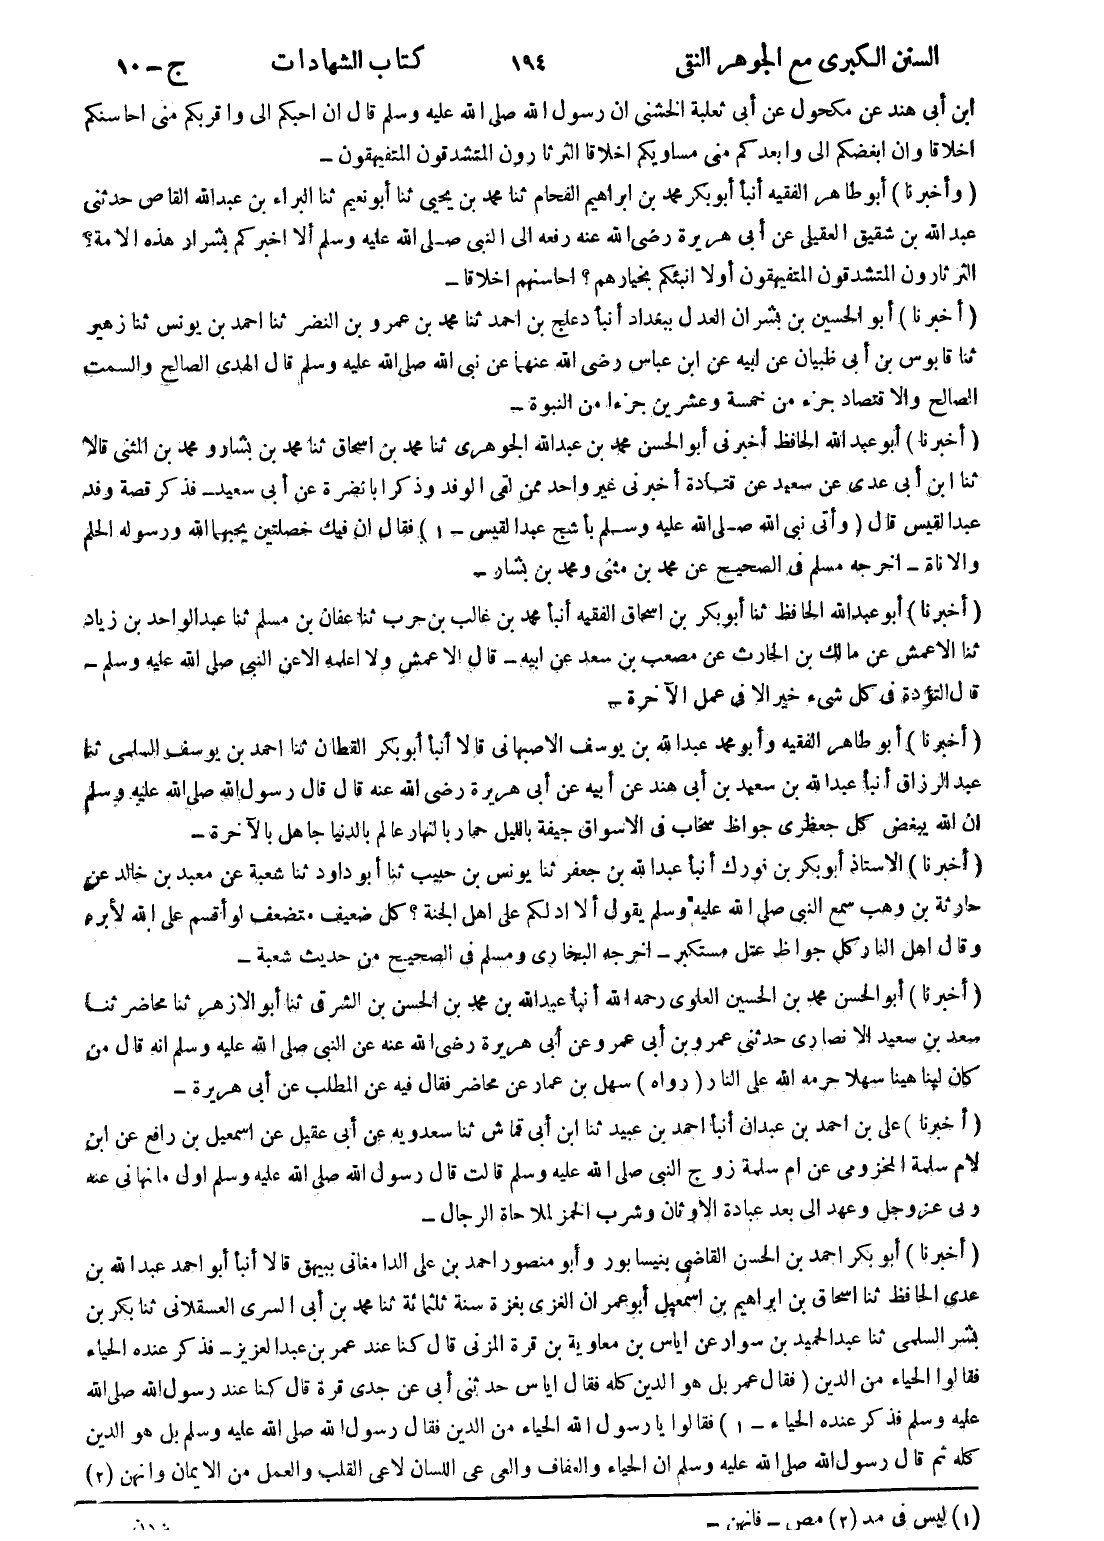 السنن الكبرى مع الجوهر النقى ١٩٤ كتاب الشهادات ج - ١٠
ابن أبى هند عن مكحول عن أبى ثعلبة الخشنى ان رسول الله صلى الله عليه وسلم قال ان احبكم الى واقربكم منى احاسنكم
اخلاقا وان ابغضكم الى وابعدكم منى مساويكم اخلاقا الثرثارون المتشدقون المتفيهقون -
( وأخبرنا ) أبو طاهر الفقيه أنبأ أبوبكر محمد بن ابراهيم الفحام ثنا محمد بن يحيى ثنا أبو نعيم ثنا البراء بن عبدالله القاص حدثنى
عبدالله بن شقيق العقيلى عن أبى هريرة رضى الله عنه رفعه الى النبى صلى الله عليه وسلم ألا اخبركم بشرار هذه الامة؟
الثرثارون المتشدقون المتفيهقون أولا انبئكم بخيارهم؟ احاسنهم اخلاقا -
( أخبرنا ) أبو الحسين بن بشران العدل ببغداد أنبأ دعلج بن احمد ثنا محمد بن عمرو بن النضر ثنا احمد بن يونس ثنا زهير
ثنا قابوس بن أبى ظبيان عن ابيه عن ابن عباس رضى الله عنهما عن نبى الله صلى الله عليه وسلم قال الهدى الصالح والسمت
الصالح والاقتصاد جزء من خمسة وعشرين جزءا من النبوة -
( أخبرنا ) أبو عبد الله الحافظ أخبرنى أبو الحسن محمد بن عبدالله الجوهرى ثنا محمد بن اسحاق ثنا محمد بن بشار و محمد بن المثنى قالا
ثنا ابن أبى عدى عن سعيد عن قتادة أخبرنى غير واحد ممن لقى الوفد وذكر ابا نضرة عن أبى سعيد - فذكر قصة وفد
عبد القيس قال ( وأتى نبى الله صلى الله عليه وسلم بأشج عبد القيس - ١ ) فقال ان فيك خصلتين يحبهما الله ورسوله الحلم
والاناة - اخرجه مسلم فى الصحيح عن محمد بن مثنى ومحمد بن بشار -
( أخبرنا ) أبو عبدالله الحافظ ثنا أبوبكر بن اسحاق الفقيه أنبأ محمد بن غالب بن حرب ثنا عفان بن مسلم ثنا عبدالواحد بن زياد
ثنا الاعمش عن مالك بن الحارث عن مصعب بن سعد عن ابيه - قال الاعمش ولا اعلمه الا عن النبى صلى الله عليه وسلم -
قال التؤدة فى كل شىء خير الا فى عمل الآخرة -
( أخبرنا ) أبو طاهر الفقيه وأبو محمد عبدالله بن يوسف الاصبهانى قالا أنبأ أبوبكر القطان ثنا احمد بن يوسف السلمى ثنا
عبد الرزاق أنبأ عبدالله بن سعيد بن أبى هند عن أبيه عن أبى هريرة رضى الله عنه قال قال رسول الله صلى الله عليه وسلم
ان الله يبغض كل جعظرى جواظ سخاب فى الاسواق جيفة بالليل حمار بالنهار عالم بالدنيا جاهل بالآخرة -
( أخبرنا ) الاستاذ أبوبكر بن فورك أنبأ عبدالله بن جعفر ثنا يونس بن حبيب ثنا أبو داود ثنا شعبة عن معبد بن خالد عن
حارثة بن وهب سمع النبى صلى الله عليه وسلم يقول ألا ادلكم على اهل الجنة؟ كل ضعيف متضعف لو أقسم على الله لأبره
وقال اهل النار كل جواظ عتل مستكبر - اخرجه البخارى ومسلم فى الصحيح من حديث شعبة -
( أخبرنا ) أبو الحسن محمد بن الحسين العلوى رحمه الله أنبأ عبيدالله بن محمد بن الحسن بن الشرقى ثنا أبو الازهر ثنا محاضر ثنا
سعد بن سعيد الانصارى حدثنى عمرو بن أبى عمرو عن أبى هريرة رضى الله عنه عن النبى صلى الله عليه وسلم انه قال من
كان لينا هينا سهلا حرمه الله على النار ( رواه ) سهل بن عمار عن محاضر فقال فيه عن المطلب عن أبى هريرة -
( أخبرنا ) على بن احمد بن عبدان أنبأ احمد بن عبيد ثنا ابن أبى قماش ثنا سعدويه عن أبى عقيل عن اسمعيل بن رافع عن ابن
لام سلمة المخزومى عن ام سلمة زوج النبى صلى الله عليه وسلم قالت قال رسول الله صلى الله عليه وسلم اول ما نهانى عنه
ربى عزوجل وعهد الى بعد عبادة الأوثان وشرب الخمر لملاحاة الرجال -
( أخبرنا ) أبو بكر احمد بن الحسن القاضى بنيسابور وأبو منصور احمد بن على الدامغانى ببيهق قالا أنبأ أبو احمد عبدالله بن
عدى الحافظ ثنا اسحاق بن ابراهيم بن اسمعيل أبو عمران الغزى بغزة سنة ثلثمائة ثنا محمد بن أبى السرى العسقلانى ثنا بكر بن
بشر السلمى ثنا عبدالحميد بن سوار عن اياس بن معاوية بن قرة المزنى قال كنا عند عمر بن عبدالعزيز - فذكر عنده الحياء
فقالوا الحياء من الدين ( فقال عمر بل هو الدين كله فقال اياس حدثنى أبى عن جدى قرة قال كنا عند رسول الله صلى الله
عليه وسلم فذكر عنده الحياء - ١ ) فقالوا يا رسول الله الحياء من الدين فقال رسول الله صلى الله عليه وسلم بل هو الدين
كله ثم قال رسول الله صلى الله عليه وسلم ان الحياء والعفاف والعى عى اللسان لاعى القلب والعمل من الايمان وانهن (٢)
(١) ليس فى مد (٢) مص - فانهن -